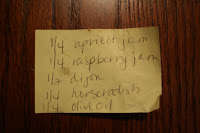 1/4 apricot jam
1/4 raspberry jam
1/2 dijon
1/4 horseradish
1/4 olive oil